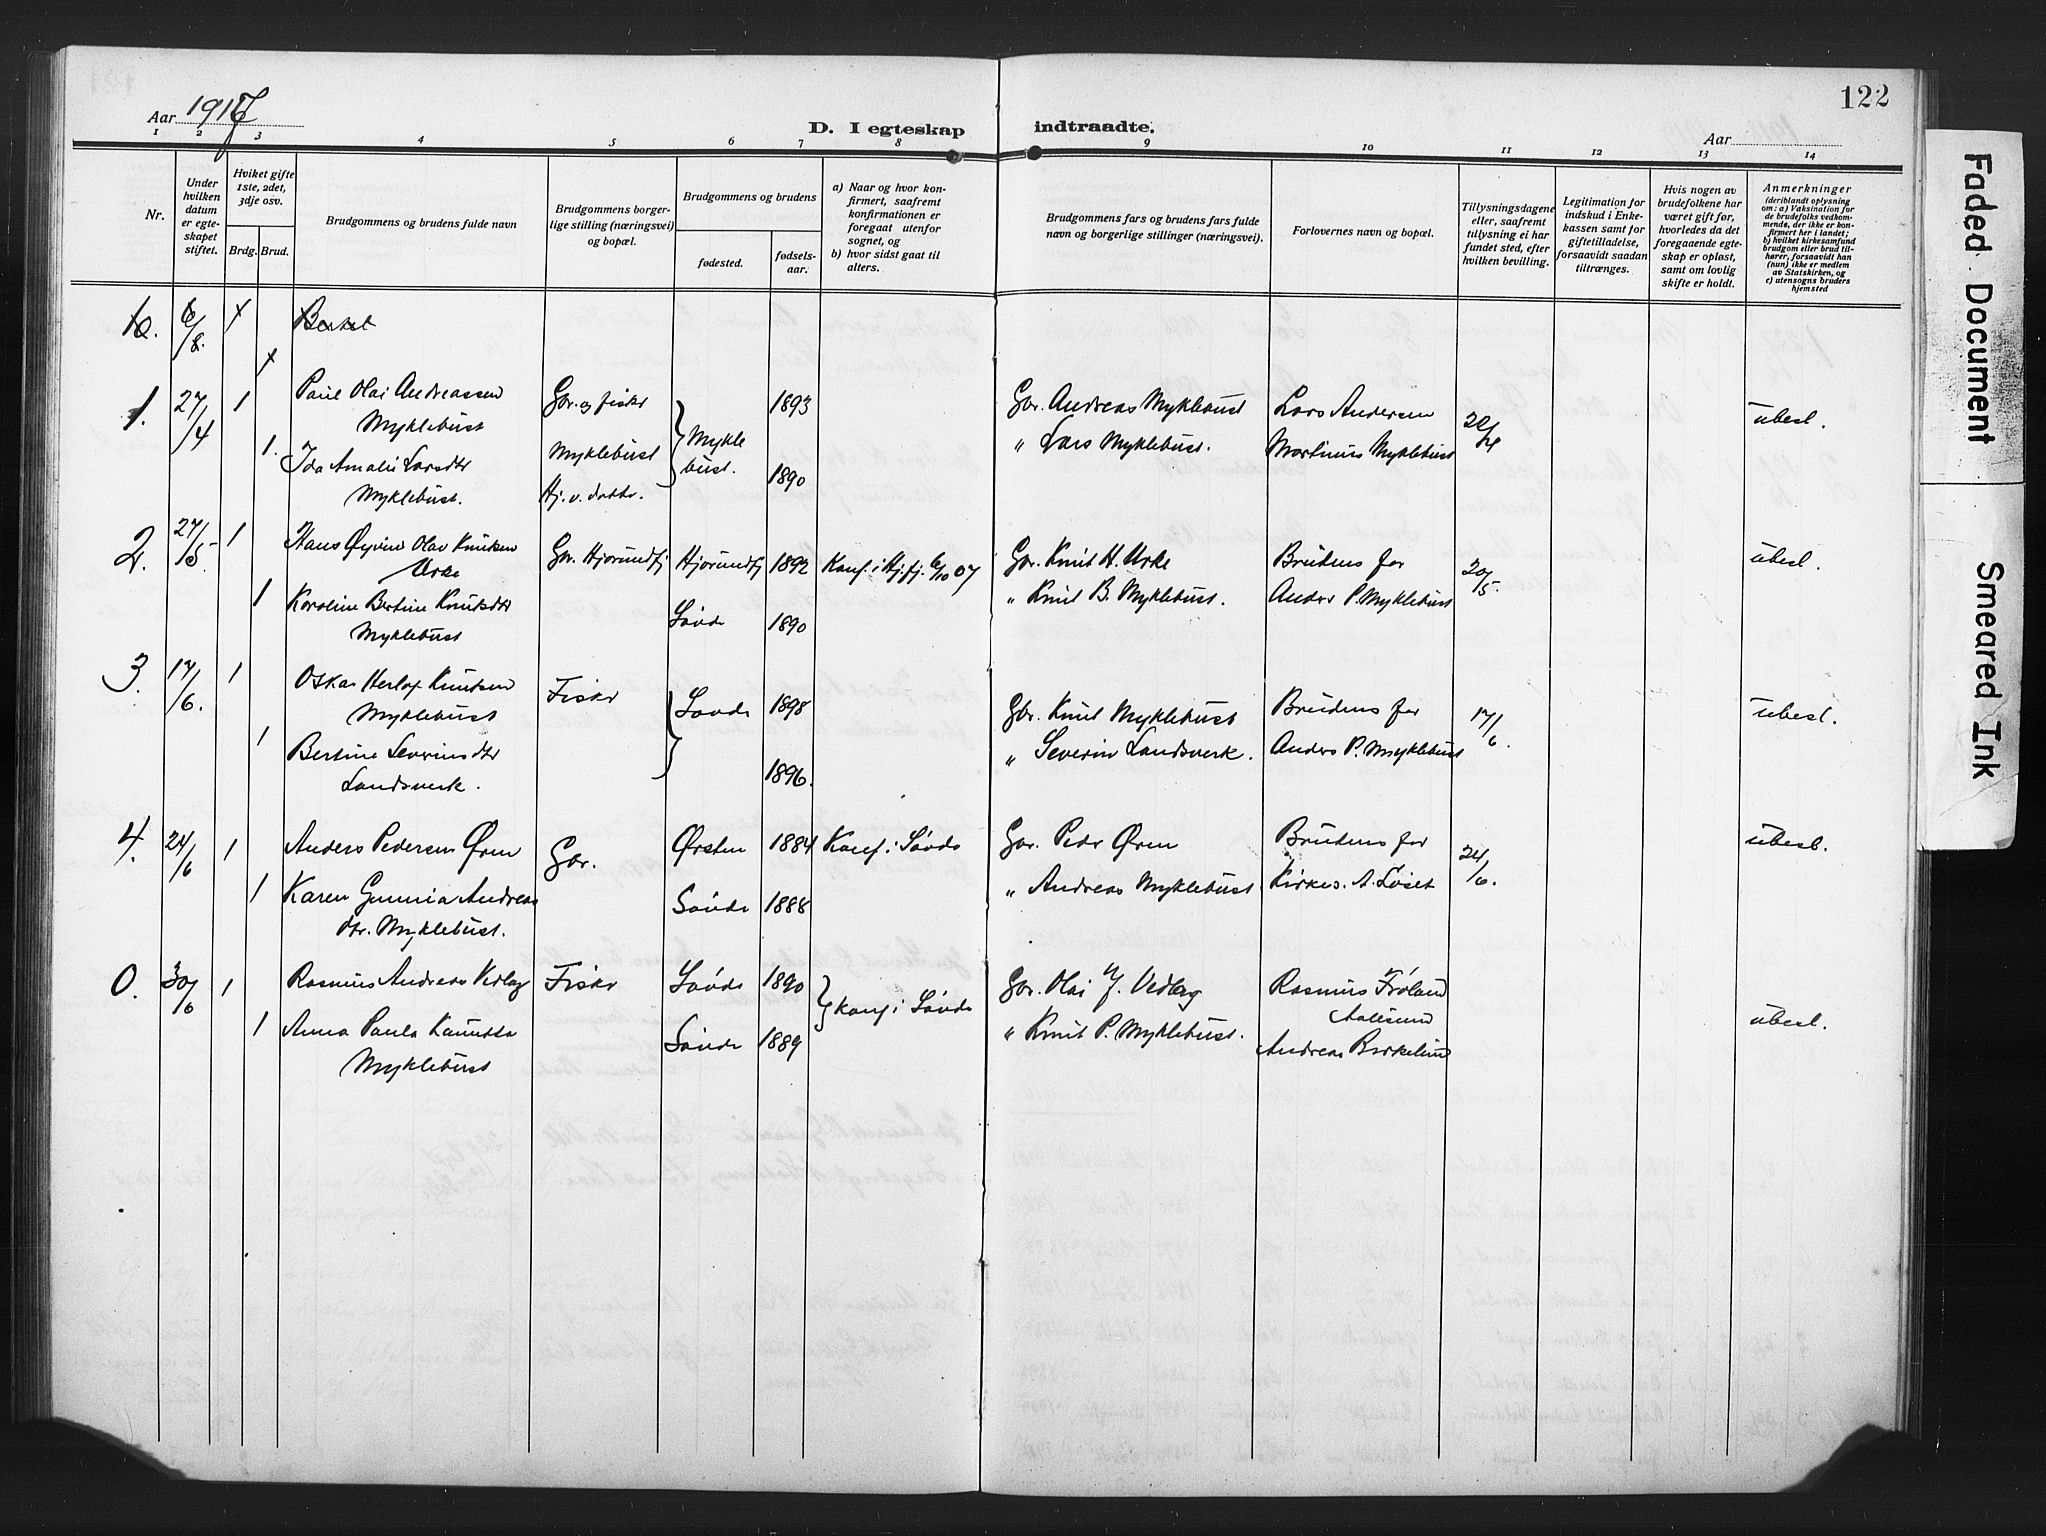 122
Aar 1917
D. I egteskap indtraadte.
Aar
1 2 3 4 5 6 7 8 9 10 11 12 13 14
Nr.
Under hvilken datum er egteskapet stiftet.
Hviket gifte 1ste, 2det, 3dje osv.
Brdg. Brud.
Brudgommens og brudens fulde navn
Brudgommens borgerlige stilling (næringsvei) og bopæl.
Brudgommens og brudens
fødested.
fødselsaar.
a) Naar og hvor konfirmert, saafremt konfirmationen er foregaat utenfor sognet, og
b) hvor sidst gaat til alters.
Brudgommens fars og brudens fars fulde navn og borgerlige stillinger (næringsvei).
Forlovernes navn og bopæl.
Tillysningsdagene eller, saafremt tillysning ei har fundet sted, efter hvilken bevilling.
Legitimation for indskud i Enkekassen samt for giftetilladelse, forsaavidt saadan tiltrænges.
Hvis nogen av brudefolkene har været gift før, hvorledes da det foregaaende egteskap er opløst, samt om lovlig skifte er holdt.
Anmerkninger (deriblandt oplysning om: a) Vaksination for de brudefolks vedkommende, der ikke er konfirmert her i landet; b) hvilket kirkesamfund brudgom eller brud tilhører, forsaavidt han (hun) ikke er medlem av Statskirken, og c) utensogns bruders hjemsted
6/8.
1. 27/4 1 Paul Olai Andreassen Gbr. og fisker 1893 Gbr. Andreas Myklebust Lars Andersen 22/4 ubesl.
Myklebust
1. Ida Amalie Larsdtr Myklebust Myklebust. 1890 " Lars Myklebust. Martinus Myklebust
Myklebust. Hj. v. datter.
2. 27/5 1 Hans Øyvind Olav Knutsen Gbr. Hjorundfj Hjorundfj 1892 Konf. i Hj.fj. 6/10 07 Gbr. Knut H. Urke Brudens far 20/5. ubesl.
Urke
1 Karoline Bertine Knutsdtr Søvde 1890 " Knut B. Myklebust. Anders P. Myklebust
Myklebust
3. 17/6. 1 Oskar Herlof Knutsen Fisker Søvde 1898 Gbr. Knut Myklebust Brudens far 17/6. ubesl.
Myklebust
1 Bertine Severinsdtr 1896. " Severin Landsverk. Anders P. Myklebust
Landsverk.
4. 24/6 1 Anders Pedersen Ørem Gbr. Ørsten 1884 Konf. i Søvde Gbr. Peder Ørem Brudens far 24/6. ubesl.
1 Karen Gunnia Andreas Søvde 1888 " Andreas Myklebust Kirkes. A. Løset
dtr. Myklebust.
0. 30/6 1 Rasmus Andreas Vedlog Fisker Søvde 1890 Konf. i Søvde Gbr. Olai J. Vedlog Rasmus Frøland
Aalesund
1 Anna Paula Knutsd. Søvde 1889 " Knut P. Myklebust. Andreas Birkelund ubesl.
Myklebust
Faded Document
Smeared Ink